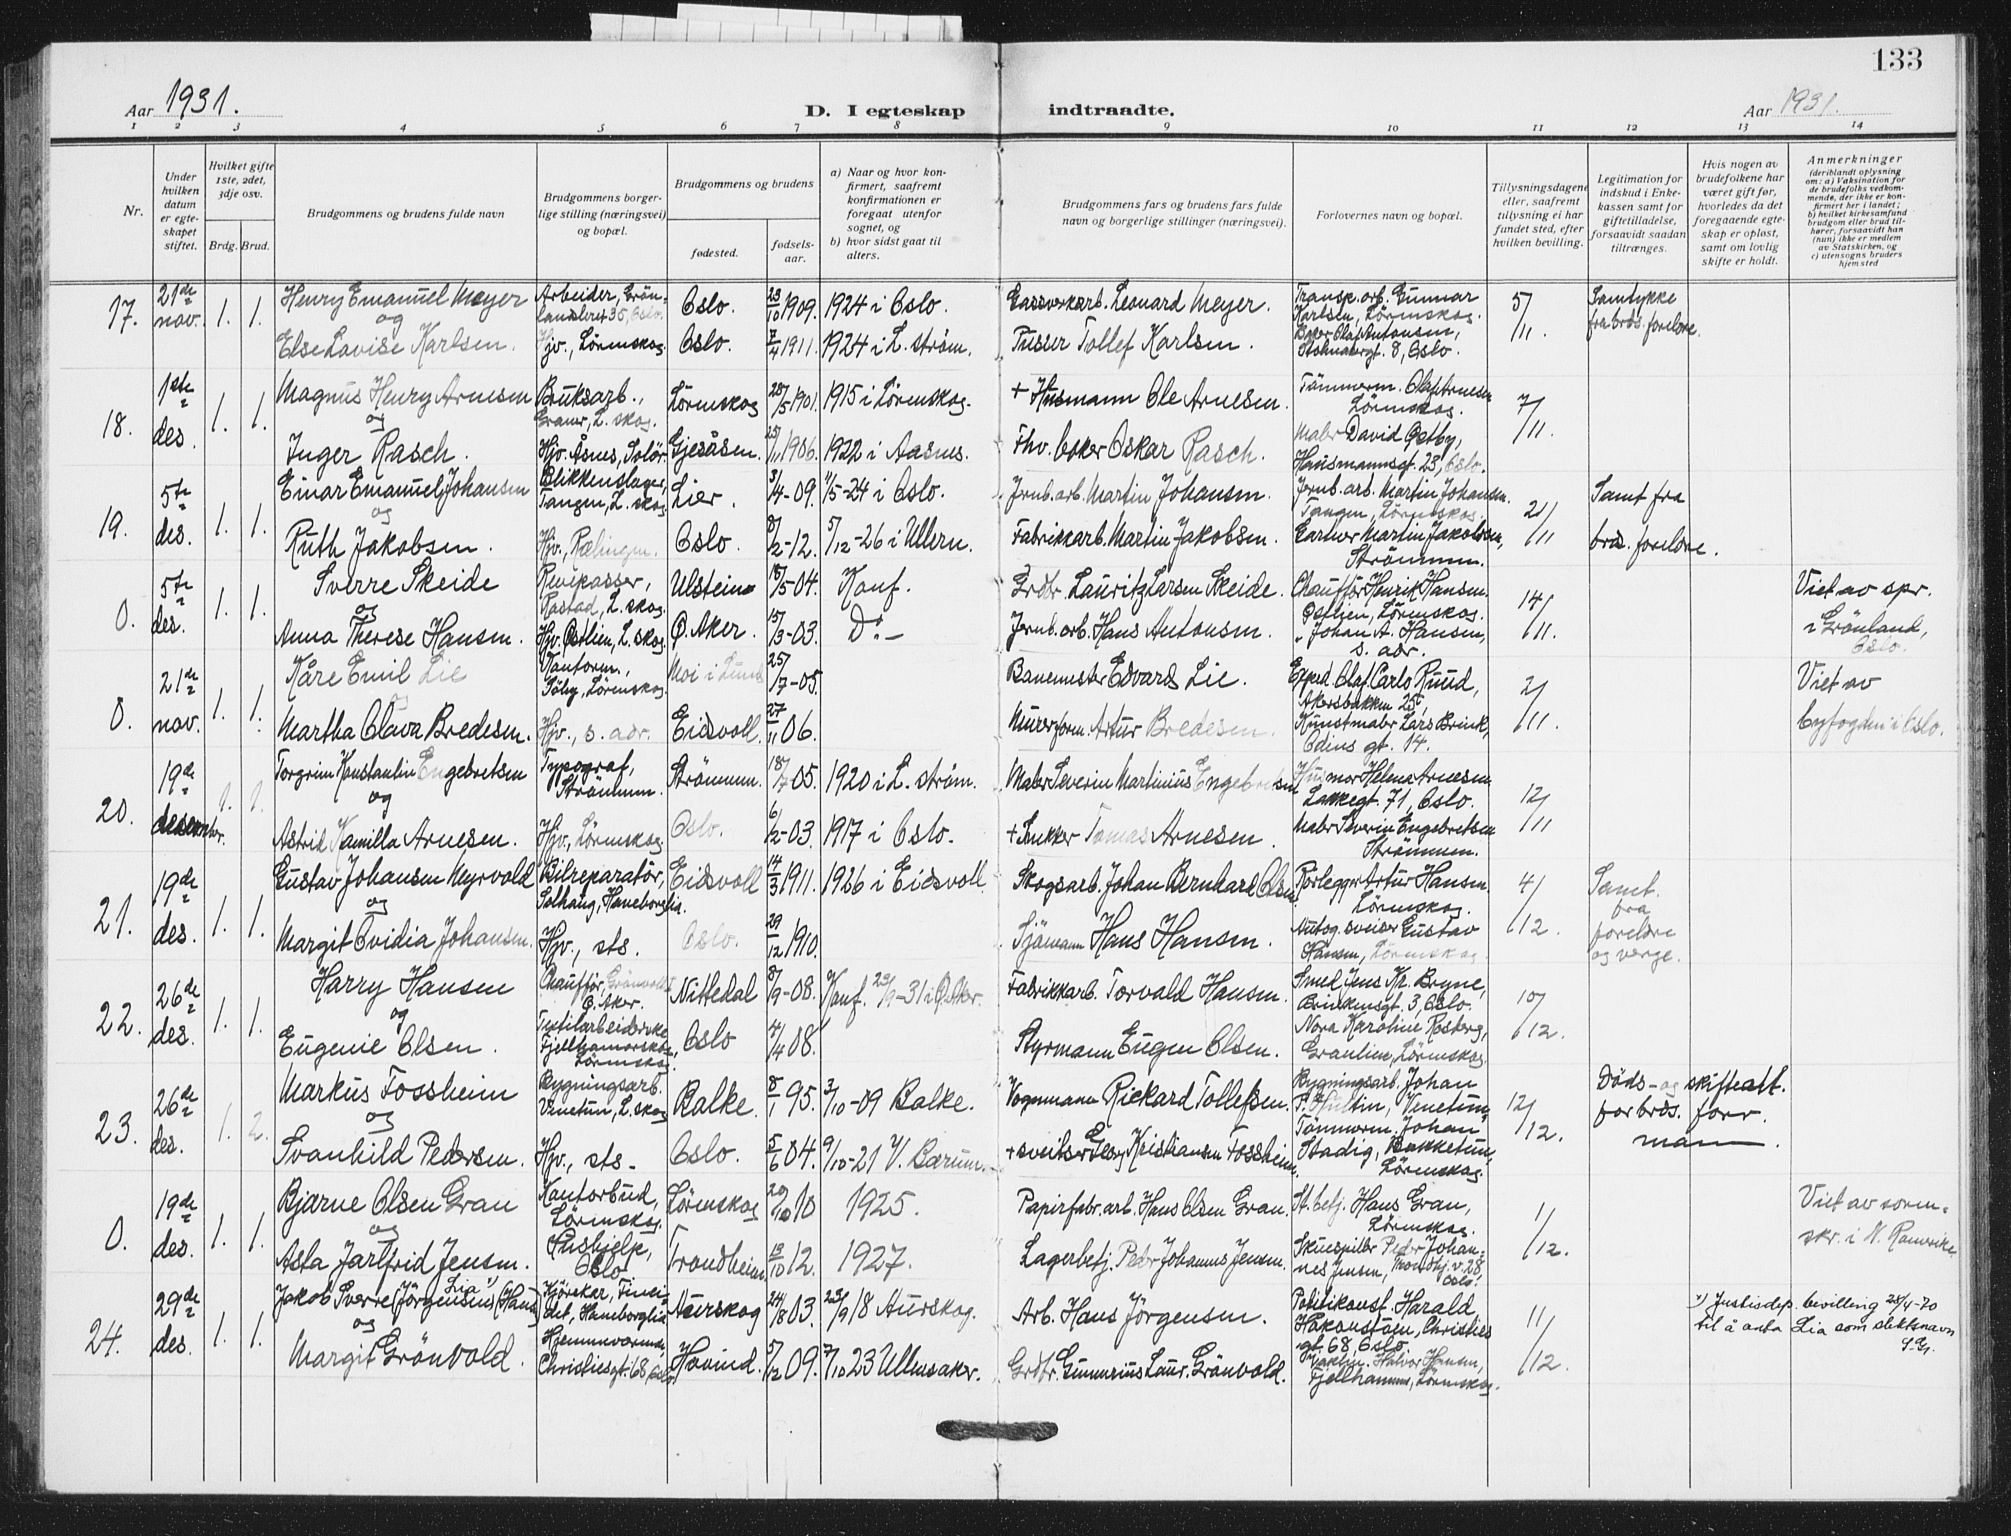 133
Aar 1931.
D. I egteskap indtraadte.
Aar 1931.
1 2 3 4 5 6 7 8 9 10 11 12 13 14
Nr.
Under hvilken datum er egteskapet stiftet.
Hvilket gifte 1ste, 2det, 3dje osv.
Brdg. Brud.
Brudgommens og brudens fulde navn
Brudgommens borgerlige stilling (næringsvei) og bopæl.
Brudgommens og brudens
fødested.
fødselsaar.
a) Naar og hvor konfirmert, saafremt konfirmationen er foregaat utenfor sognet, og
b) hvor sidst gaat til alters.
Brudgommens fars og brudens fars fulde navn og borgerlige stillinger (næringsvei).
Forlovernes navn og bopæl.
Tillysningsdagene eller, saafremt tillysning ei har fundet sted, efter hvilken bevilling.
Legitimation for indskud i Enkekassen samt for giftetilladelse, forsaavidt saadan tiltrænges.
Hvis nogen av brudefolkene har været gift før, hvorledes da det foregaaende egteskap er opløst, samt om lovlig skifte er holdt.
Anmerkninger
(deriblandt oplysning om: a) Vaksination for de brudefolks vedkommende, der ikke er konfirmert her i landet;
b) hvilket kirkesamfund brudgom eller brud tilhører, forsaavidt han (hun) ikke er medlem av Statskirken, og
c) utensogns bruders hjemsted
17. 21de nov. 1. 1. Henry Emanuel Meyer Arbeider, Grønlandsleret 35, Oslo. Oslo. 23/10 1909. 1924 i Oslo. Gassverksarb. Leonard Meyer. Transp. arb. Gunnar Karlsen, Lörenskog. 5/11. Samtykke fra brds. foreldre.
og
Else Lovise Karlsen. Hjv., Lörenskog. Oslo. 7/4 1911. 1924 i L. ström. Tusser Tollef Karlsen. Baker Olaf Antonsen, 8, Oslo.
18. 1ste des. 1. 1. Magnus Henry Arnesen Bruksarb., Graner, L. skog. Lörenskog 28/5 1901. 1915 i Lörenskog. + Husmann Ole Arnesen. Tömmerm. Olaf Arnesen Lörenskog. 7/11.
og
Inger Rasch. Hjv. Åsnes, Solör. Gjesåsen. 25/11 1906. 1922 i Aasnes. Fhv. baker Oskar Rasch. Maler David Østby, Hausmannsgt. 23, Oslo.
19. 5te des. 1. 1. Einar Emanuel Johansen Blikkenslager, Tangen, L. skog Lier. 3/4-09. 11/5-24 i Oslo. Jernb. arb. Martin Johansen. Jernb. arb. Martin Johansen. Tangen, Lörenskog. 21/11 Samt. fra brds. foreldre.
og
Ruth Jakobsen. Hjv., Rælingen. Oslo. 8/2-12. 5/12-26 i Ullern. Fabrikkarb. Martin Jakobsen. Gartner Martin Jakobsen, Strömmen.
0. 5te des. 1. 1. Sverre Skeide Revepasser, Rastad, L. skog. Ulstein 18/5 04. Konf. Grdbr. Lauritz Larsen Skeide. Chauffør Henrik Hansen. Østlien, Lörenskog. 14/11. Viet av spr. i Grönland, Oslo.
og
Anna Therese Hansen. Hjv. Östlien, L. skog. Ø. Aker. 15/3-03. D:o- Jernb. arb. Hans Antonsen. Johan A. Hansen, s. adr.
0. 21de nov. 1. 1. Kåre Emil Lie Kontorm., Söby, Lörenskog. Moi i Lund 25/7-05. Banemester Edvard Lie. Exped. Olaf Carlo Ruud, Akersbakken 25, 2/11. Viet av byfogden i Oslo.
og
Martha Olava Bredesen. Hjv., s. adr. Eidsvoll. 27/11 06. Murerform. Artur Bredesen. Kunstmaler Lars Brink, Odins gt. 14.
20. 19de desember. 1. 1. Torgrim Konstantin Engebretsen Typograf, Strömmen. Strömmen. 18/7-05. 1920 i L. ström. Maler Severin Martinius Engebretsen Husmor Helma Arnesen. Lakkegt. 71, Oslo. 12/11
og
Astrid Kamilla Arnesen. Hjv., Lörenskog. Oslo. 6/2-03. 1917 i Oslo. + Snekker Tomas Arnesen. Maler Severin Engebretsen Strömmen.
21. 19de des. 1. 1. Gustav Johansen Myrvold Bilreparatör, Solhaug, Haneborglia. Eidsvoll 14/3 1911. 1926 i Eidsvoll Skogsarb. Johan Bernhard Olsen Rörlegger Artur Hansen Lörenskog. 4/12. Samt. fra foreldre og verge.
og
Margit Ovidia Johansen. Hjv., sts. Oslo. 29/12 1910. Sjömann Hans Hansen. Autog. sveiser Gustav Hansen, Lörenskog
22. 26de des. 1. 1. Harry Hansen Chauffør, Grönvold, Ö. Aker. Nittedal 8/9-08. Konf. 23/9-31 i Ö. Aker. Fabrikkarb. Torvald Hansen. Smed Jens Kr. Bryne, Brinkensgt. 3, Oslo. 10/12.
og
Eugenie Olsen. Textilarbeiderske, Fjellhamarskog, Lörenskog. Oslo 4/4 08. Styrmann Eugen Olsen. Nora Karoline Rosberg, Granlien, Lörenskog.
23. 26de des. 1. 2. Markus Fossheim Bygningsarb. Venetun, L. skog Balke. 8/1 95. 3/10-09 Balke. Vognmann Rickard Tollefsen. Bygningsarb. Johan P. Hultin, Venetun, 12/12. Döds- og skifteatt. for brds. forr. mann.
og
Svanhild Pedersen. Hjv., sts- Oslo. 5/6 04. 9/10-21 V. Bærum. + sveitser Georg Kristiansen Fossheim. Tömmerm. Johan Stadig, Bakketun, Lörenskog.
0. 19de des. 1. 1. Bjarne Olsen Gran Kontorbud, Lörenskog. Lörenskog 20/10 10 1925. Papirfabr. arb. Hans Olsen Gran. St. betj. Hans Gran, Lörenskog. 1/12. Viet av sorenskr. i N. Romerike
og
Asta Jarlfrid Jensen. Hushjelp, Oslo Trondheim. 13/10 12. 1927. Lagerbetj. Peder Johannes Jensen. Skuespiller Peder Johannes Jensen, v. 28, Oslo.
24. 29de des. 1. 1. Jakob Sverre (Jörgensen) Lia x) (Hans) Kjörekar, Haneborglia Aurskog 24/8 03. 23/9 18 Aurskog. Arb. Hans Jörgensen. Politikonst. Harald Håkonstöen, Christies gt. 68, Oslo. 11/12. x) Justisdep. bevilling 28/4-70 til å anta Lia som slektsnavn
og
Margit Grönvold. Hjemmeværende, Christiesgt. 68, Oslo. Hovind. 5/12 09. 7/10 23 Ullensaker. Grdbr. Gunnerius Laur. Grönvold. Halvor Hansen, Fjellhamar, Lörenskog.